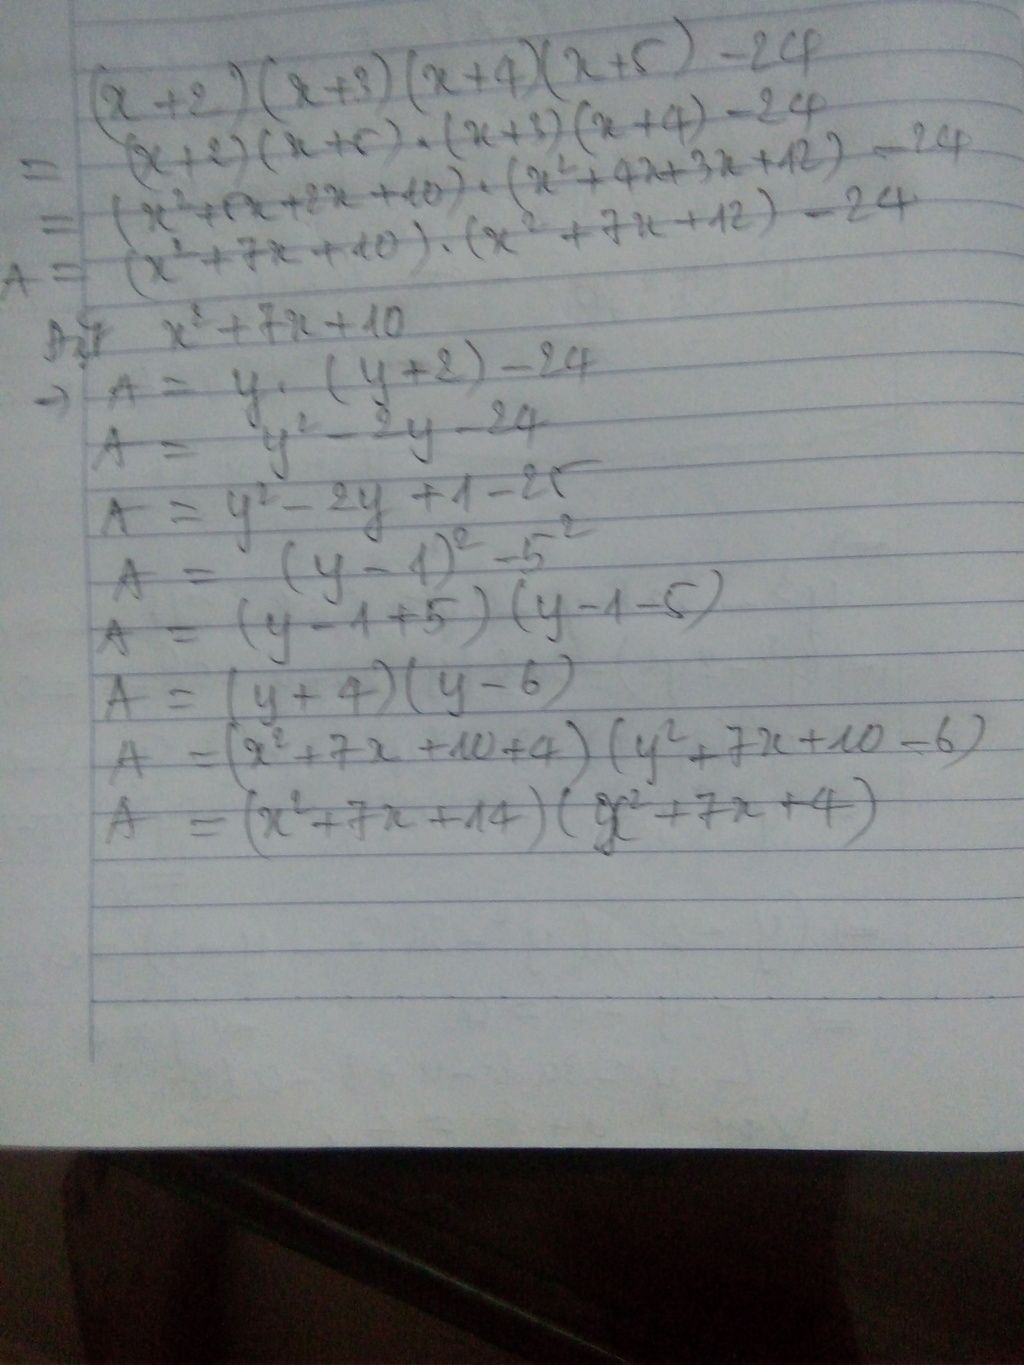 (x+2)(x+3)(x+4)(x+5) - 24
= (x+2)(x+5).(x+3)(x+4) - 24
= (x²+5x+2x+10).(x²+4x+3x+12) - 24
A = (x²+7x+10).(x²+7x+12) - 24
Đặt x²+7x+10
→ A = y.(y+2) - 24
A = y² - 2y - 24
A = y² - 2y + 1 - 25
A = (y - 1)² - 5²
A = (y - 1 + 5)(y - 1 - 5)
A = (y + 4)(y - 6)
A = (x²+7x+10+4)(y²+7x+10-6)
A = (x²+7x+14)(x²+7x+4)